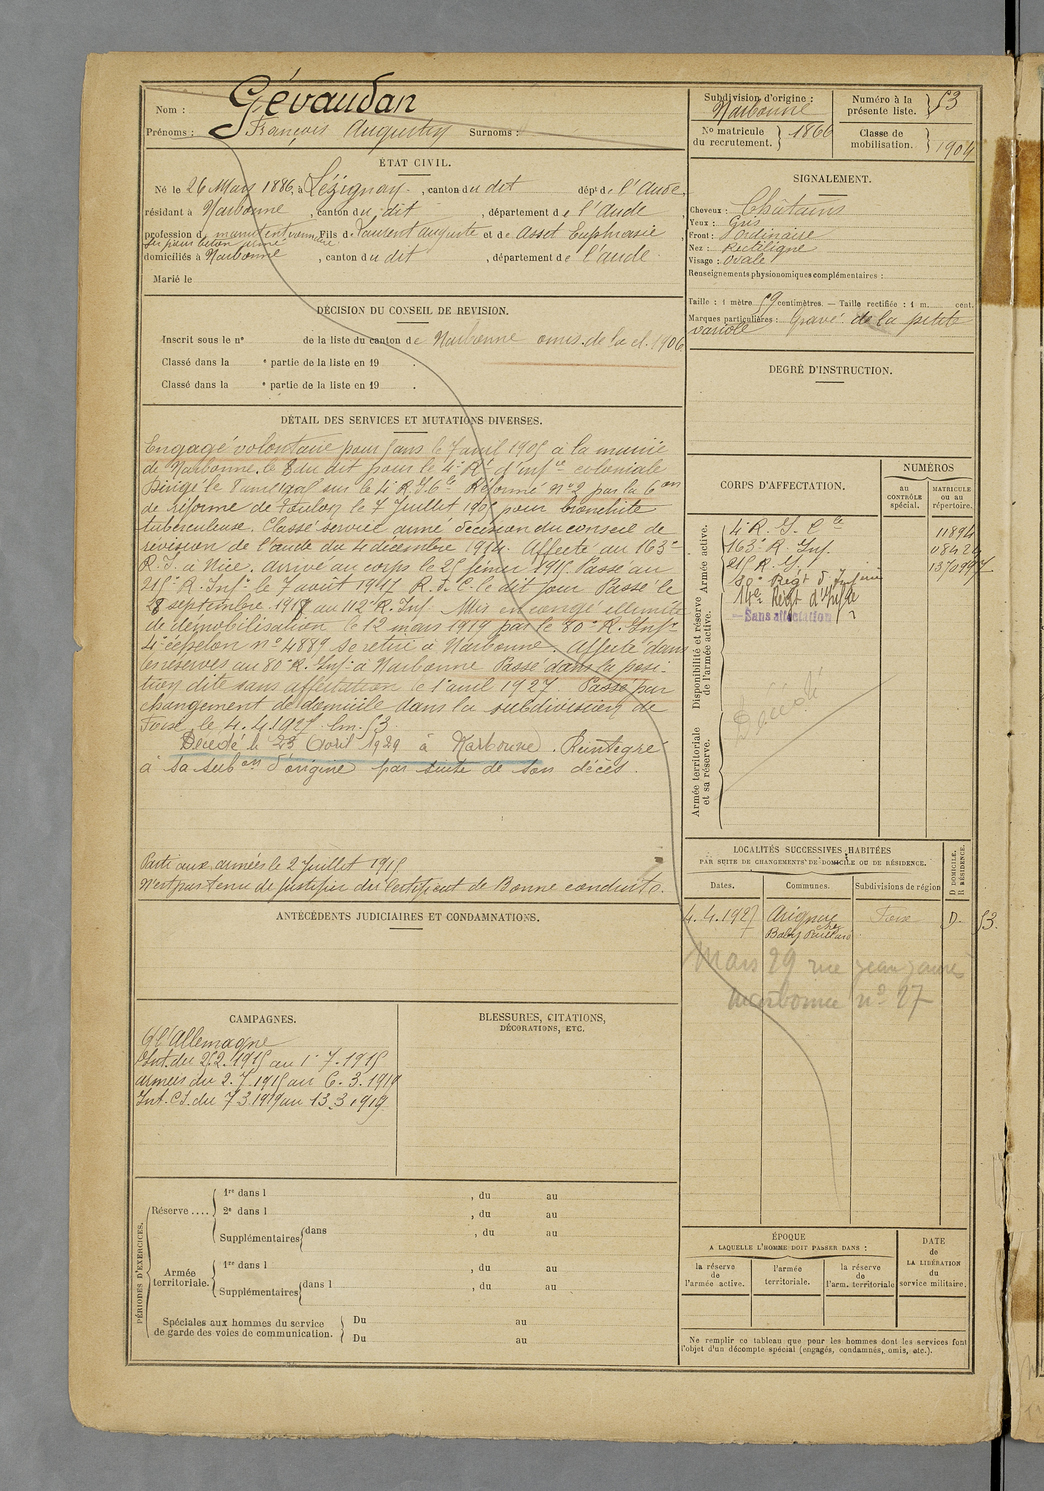 Nom : Gévaudan
Prénoms : François Augustin Surnoms :
ÉTAT CIVIL.
Né le 26 Mars 1886, à Lézignan, canton du dit, dépt de l'Aude,
résidant à Narbonne, canton du dit, département de l'Aude
profession de manutentionnaire Fils de Laurent Auguste et de Assot Euphrasie
fer pour béton armé
domiciliés à Narbonne, canton du dit, département de l'Aude.
Marié le
DÉCISION DU CONSEIL DE REVISION.
Inscrit sous le n° de la liste du canton de Narbonne omis de la cl. 1906
Classé dans la e partie de la liste en 19 .
Classé dans la e partie de la liste en 19 .
DÉTAIL DES SERVICES ET MUTATIONS DIVERSES.
Engagé volontaire pour 5 ans le 7 avril 1905 à la mairie
de Narbonne, le 8 du dit pour le 4e Rt d'Infie coloniale
Dirigé le sur le 4e R.I.Cle Réformé n°2 par la Con
de réforme de Toulon le 7 Juillet 1905 pour bronchite
tuberculeuse. Classé service armé décision du conseil de
revision de l'Aude du 4 décembre 1914. Affecté au 163e
R.I. à Nice. Arrivé au corps le 25 février 1915. Passé au
215e R. Inf. le 7 août 1917 R.I.C. le dit jour Passé le
28 septembre 1917 au 112e R. Inf. Mis en congé illimité
de démobilisation le 12 mars 1919 par le 80e R. Infie
4e échelon n° 4889 se retire à Narbonne. Affecté dans
les réserves au 80e R. Inf. à Narbonne Passé dans la posi-
tion dite sans affectation le 1er avril 1927. Passé par
changement de domicile dans la subdivision de
Foix le 4.4.1927 lm. 53
Décédé le 23 Avril 1929 à Narbonne. Réintégré
à sa subon d'origine par suite de son décès.
Parti aux armées le 2 Juillet 1915
N'est pas tenu de justifier du Certificat de Bonne conduite.
ANTÉCÉDENTS JUDICIAIRES ET CONDAMNATIONS.
CAMPAGNES.
C/ l'Allemagne
Int. du 22.2.1915 au 1er.7.1915
armées du 2.7.1915 au 6.3.1919
Int. C.S. du 7.3.1919 au 13.3.1919
BLESSURES, CITATIONS,
DÉCORATIONS, ETC.
PÉRIODES D'EXERCICES.
Réserve ....
1re dans l , du au
2e dans l , du au
Supplémentaires dans , du au
Armée territoriale.
1re dans l , du au
Supplémentaires dans l , du au
Spéciales aux hommes du service
de garde des voies de communication.
Du au
Du au
Subdivision d'origine :
Narbonne
N° matricule
du recrutement. 1866
Numéro à la
présente liste. 53
Classe de
mobilisation. 1904
SIGNALEMENT.
Cheveux : Châtains
Yeux : Gris
Front : ordinaire
Nez : Rectiligne
Visage : Ovale
Renseignements physionomiques complémentaires :
Taille : 1 mètre 59 centimètres. — Taille rectifiée : 1 m. cent.
Marques particulières : Gravé de la petite
variole
DEGRÉ D'INSTRUCTION.
CORPS D'AFFECTATION.
NUMÉROS
au
CONTRÔLE
spécial.
MATRICULE
ou au
répertoire.
Armée active.
4e R. I. Cle 11894
163e R. Inf.
215 R. I.
80e Régt d'Infanterie
Disponibilité et réserve
de l'armée active.
14e Régt d'Infie
—Sans affectation
Armée territoriale
et sa réserve.
Décédé
LOCALITÉS SUCCESSIVES HABITÉES
PAR SUITE DE CHANGEMENTS DE DOMICILE OU DE RÉSIDENCE.
Dates.
Communes.
Subdivisions de région
D DOMICILE.
R RÉSIDENCE.
4.4.1927 Arignac Foix D. 53.
chez
Mars 29 rue Jean Jaurès
Narbonne n° 27
ÉPOQUE
A LAQUELLE L'HOMME DOIT PASSER DANS :
la réserve
de
l'armée active.
l'armée
territoriale.
la réserve
de
l'arm. territoriale
DATE
de
LA LIBÉRATION
du
service militaire.
Ne remplir ce tableau que pour les hommes dont les services font
l'objet d'un décompte spécial (engagés, condamnés, omis, etc.).